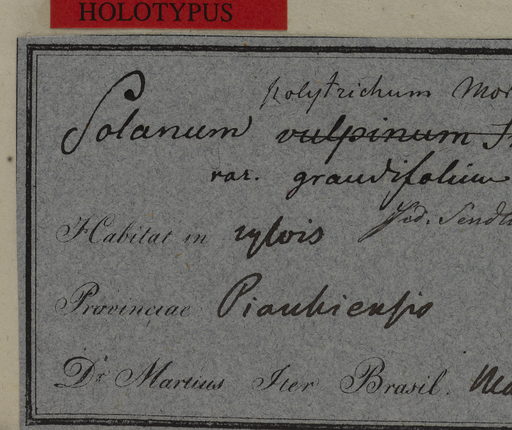 HOLOTYPUS
polytrichum Mor
Solanum vulpinum
var. grandifolium
Sendt
Habitat in sylvis
Provinciae Piauhiensis
Dr. Martius Iter Brasil.